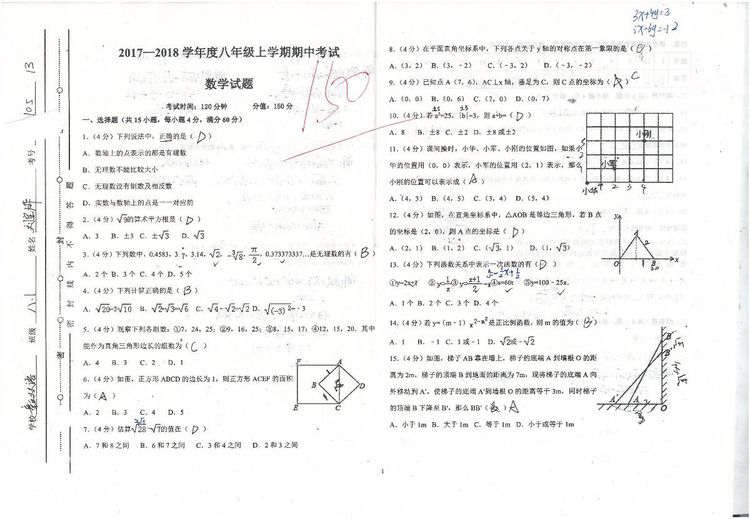 2017—2018 学年度八年级上学期期中考试
数学试题
考试时间：120分钟 分值：150分
一、选择题（共 15 小题，每小题 4 分，满分 60 分）
1.（4分）下列说法中，正确的是（ D ）
A．数轴上的点表示的都是有理数
B．无理数不能比较大小
C．无理数没有倒数及相反数
D．实数与数轴上的点是一一对应的
2.（4分）√9的算术平方根是（ D ）
A．3 B．±3 C．±√3 D．√3
A．2个 B．3个 C．4个 D．5个
4.（4分）下列计算正确的是（ B ）
5.（4分）观察下列各组数：①7，24，25；②9，16，25；③8，15，17；④12，15，20，其中
能作为直角三角形边长的组数为（ C ）
A．4 B．3 C．2 D．1
6.（4分）如图，正方形 ABCD 的边长为 1，则正方形 ACEF 的面积
为（ A ）
A．2 B．3 C．4 D．5
F A B D E C
7.（4分）估算√28-√7的值在（ D ）
A．7和8之间 B．6和7之间 C．3和4之间 D．2和3之间
150
3x+4y=3
8.（4分）在平面直角坐标系中，下列各点关于 y 轴的对称点在第一象限的是（ C ）
A.（3，2） B.（3，-2） C.（-3，2） D.（-3，-2）
9.（4分）已知点 A（7，6），AC⊥x 轴，垂足为 C，则 C 点的坐标为（ ） C
A.（0，0） B.（6，0） C.（7，0） D.（0，7）
10.（4分）若 a²=25，|b|=3，则 a+b=（ D ）
A．8 B．±8 C．±2 D．±8 或±2
11.（4分）课间操时，小华、小军、小刚的位置如图，如果小
华的位置用（0，0）表示，小军的位置用（2，1）表示，那么
小刚的位置可以表示成（ A ）
A.（4，3） B.（4，5） C.（3，4） D.（5，4）
小刚
小军
小华
12.（4分）如图，在直角坐标系中，△AOB 是等边三角形，若 B 点
的坐标是（2，0），则 A 点的坐标是（ D ）
A.（2，1） B.（1，2） C.（√3，1） D.（1，√3）
13.（4分）下列函数关系中表示一次函数的有（ D ）
A．1个 B．2个 C．3个 D．4个
14.（4分）若 y=（m-1）x^{2-m²}是正比例函数，则 m 的值为（ B ）
A．1 B．-1 C．1 或-1 D．√2或-√2
15.（4分）如图，梯子 AB 靠在墙上，梯子的底端 A 到墙根 O 的距
离为 2m，梯子的顶端 B 到地面的距离为 7m，现将梯子的底端 A 向
外移动到 A′，使梯子的底端 A′到墙根 O 的距离等于 3m，同时梯子
的顶端 B 下降至 B′，那么 BB′（ ） A
A．小于 1m B．大于 1m C．等于 1m D．小于或等于 1m
1
学校
班级 八.1
姓名
考号 105 13